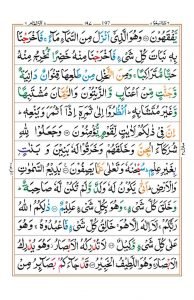 197
يَّفْقَهُوْنَ وَهُوَ الَّذِيْۤ اَنْزَلَ مِنَ السَّمَآءِ مَآءً ۚ فَاَخْرَجْنَا
بِهٖ نَبَاتَ كُلِّ شَيْءٍ فَاَخْرَجْنَا مِنْهُ خَضِرًا نُّخْرِجُ مِنْهُ
حَبًّا مُّتَرَاكِبًا ۚ وَمِنَ النَّخْلِ مِنْ طَلْعِهَا قِنْوَانٌ دَانِيَةٌ
وَّجَنّٰتٍ مِّنْ اَعْنَابٍ وَّالزَّيْتُوْنَ وَالرُّمَّانَ مُشْتَبِهًا
وَّغَيْرَ مُتَشَابِهٍ ؕ اُنْظُرُوْۤا اِلٰى ثَمَرِهٖۤ اِذَاۤ اَثْمَرَ وَيَنْعِهٖ ؕ
اِنَّ فِيْ ذٰلِكُمْ لَاٰيٰتٍ لِّقَوْمٍ يُّؤْمِنُوْنَ وَجَعَلُوْا لِلّٰهِ
شُرَكَآءَ الْجِنَّ وَخَلَقَهُمْ وَخَرَقُوْا لَهٗ بَنِيْنَ وَبَنٰتٍۭ
بِغَيْرِ عِلْمٍ ؕ سُبْحٰنَهٗ وَتَعٰلٰى عَمَّا يَصِفُوْنَ بَدِيْعُ السَّمٰوٰتِ
وَالْاَرْضِ ؕ اَنّٰى يَكُوْنُ لَهٗ وَلَدٌ وَّلَمْ تَكُنْ لَّهٗ صَاحِبَةٌ ؕ
وَخَلَقَ كُلَّ شَيْءٍ ۚ وَهُوَ بِكُلِّ شَيْءٍ عَلِيْمٌ ذٰلِكُمُ اللّٰهُ
رَبُّكُمْ ۚ لَاۤ اِلٰهَ اِلَّا هُوَ ۚ خَالِقُ كُلِّ شَيْءٍ فَاعْبُدُوْهُ ۚ وَهُوَ
عَلٰى كُلِّ شَيْءٍ وَّكِيْلٌ لَا تُدْرِكُهُ الْاَبْصَارُ وَهُوَ يُدْرِكُ
الْاَبْصَارَ ۚ وَهُوَ اللَّطِيْفُ الْخَبِيْرُ قَدْ جَآءَكُمْ بَصَآئِرُ مِنْ